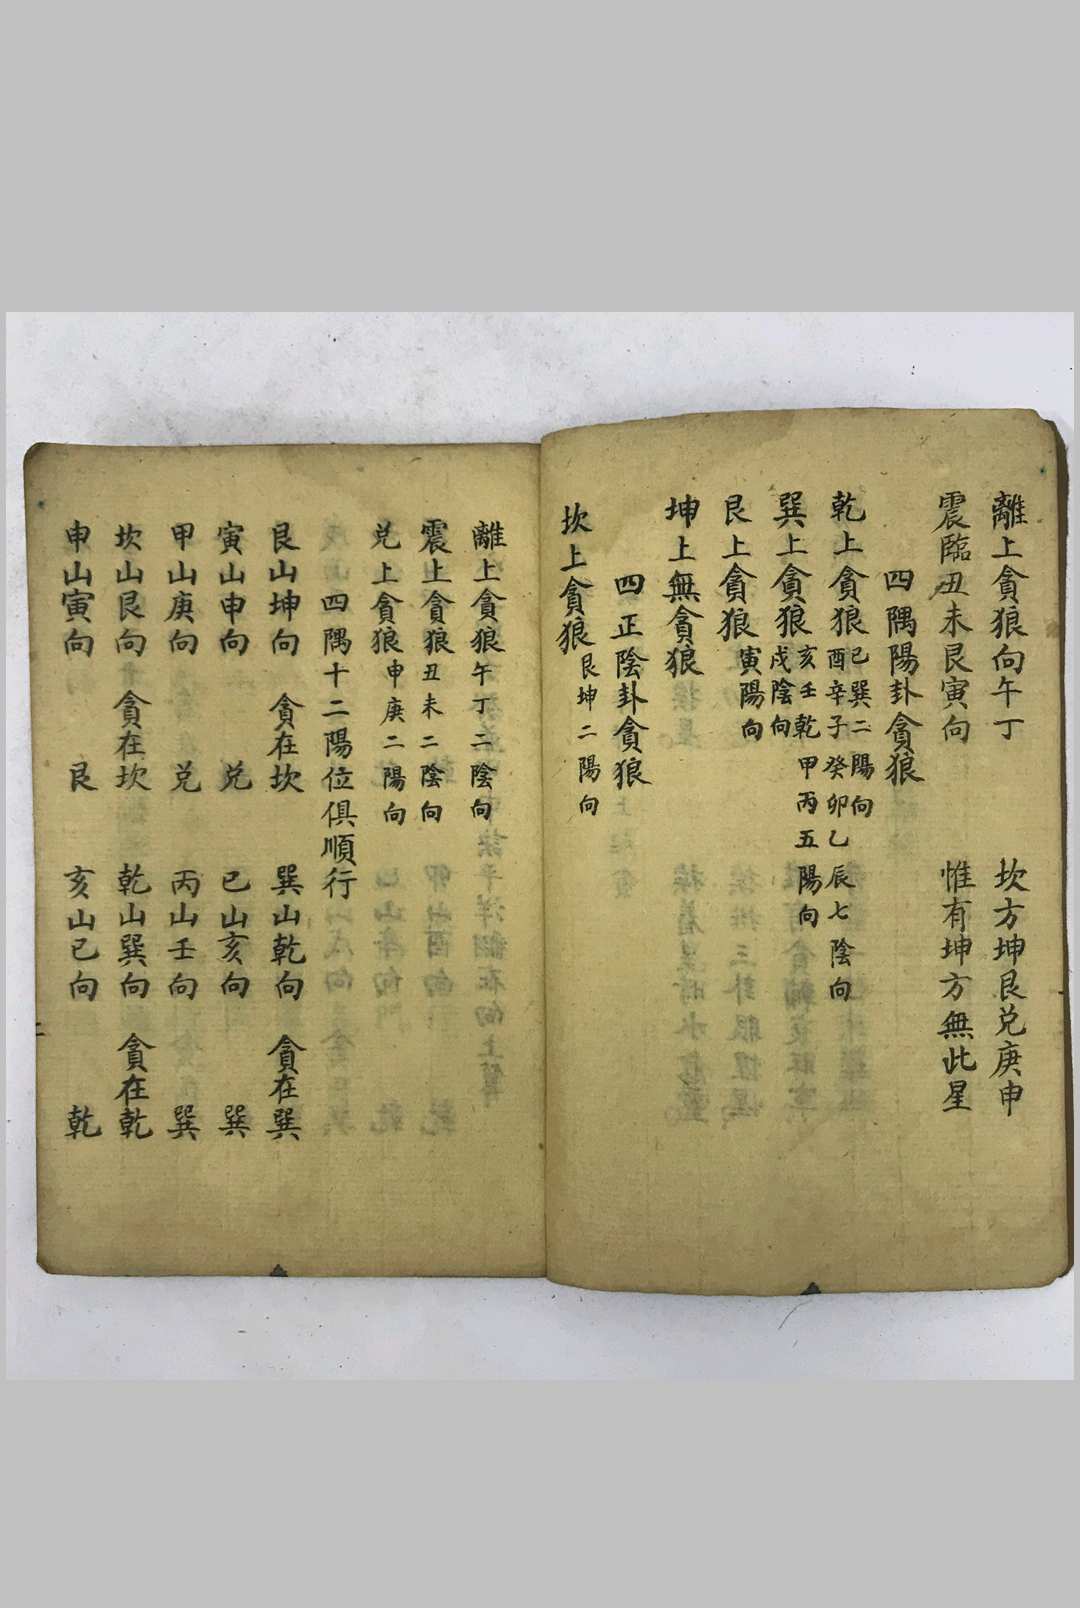 離上貪狼向午丁　坎方坤艮兑庚申
震臨丑未艮寅向　惟有坤方無此星
四隅陽卦貪狼
乾上貪狼巳巽二陽向
酉辛子癸卯乙辰七陰向
巽上貪狼亥壬乾甲丙五陽向
戌陰向
艮上貪狼寅陽向
坤上無貪狼
四正陰卦貪狼
坎上貪狼艮坤二陽向
離上貪狼午丁二陰向
震上貪狼丑未二陰向
兑上貪狼申庚二陽向
四隅十二陽位俱順行
艮山坤向　貪在坎　巽山乾向　貪在巽
寅山申向　兑　巳山亥向　巽
甲山庚向　兑　丙山壬向　巽
坎山艮向　貪在坎　乾山巽向　貪在乾
申山寅向　艮　亥山巳向　乾